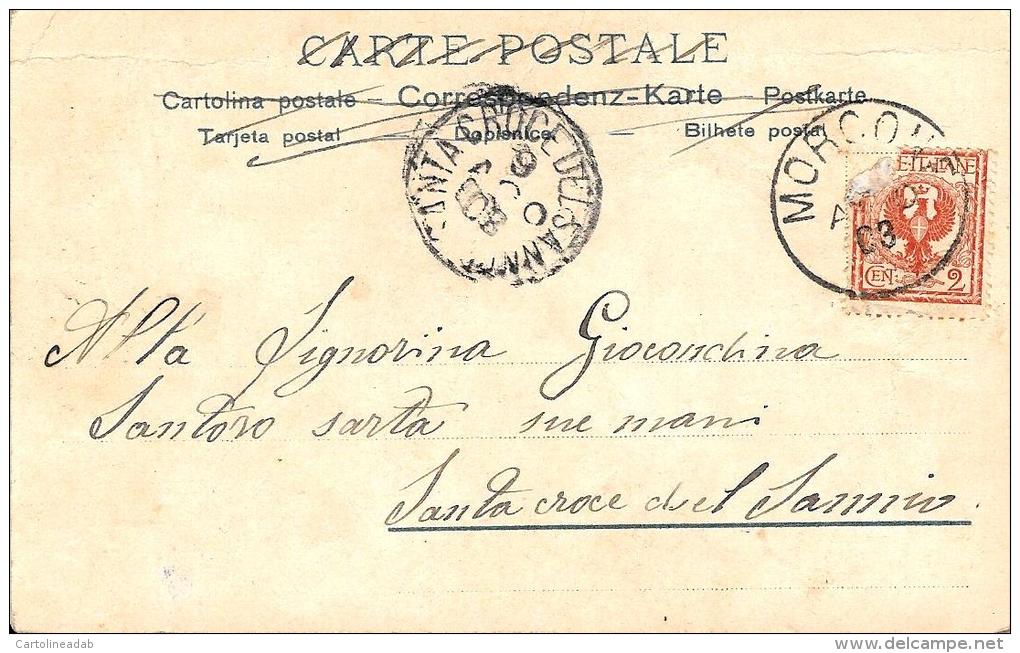 CARTE POSTALE
Cartolina postale – Correspondenz-Karte – Postkarte
Tarjeta postal – Dopisnice – Bilhete postal
SANTA CROCE DEL SANNIO
MORCONE
03
POSTE ITALIANE
CEN. 2
Alla Signorina Giocondina
Santoro sarta sue mani
Santa croce del Sannio
Cartolineadab
delcampe.net